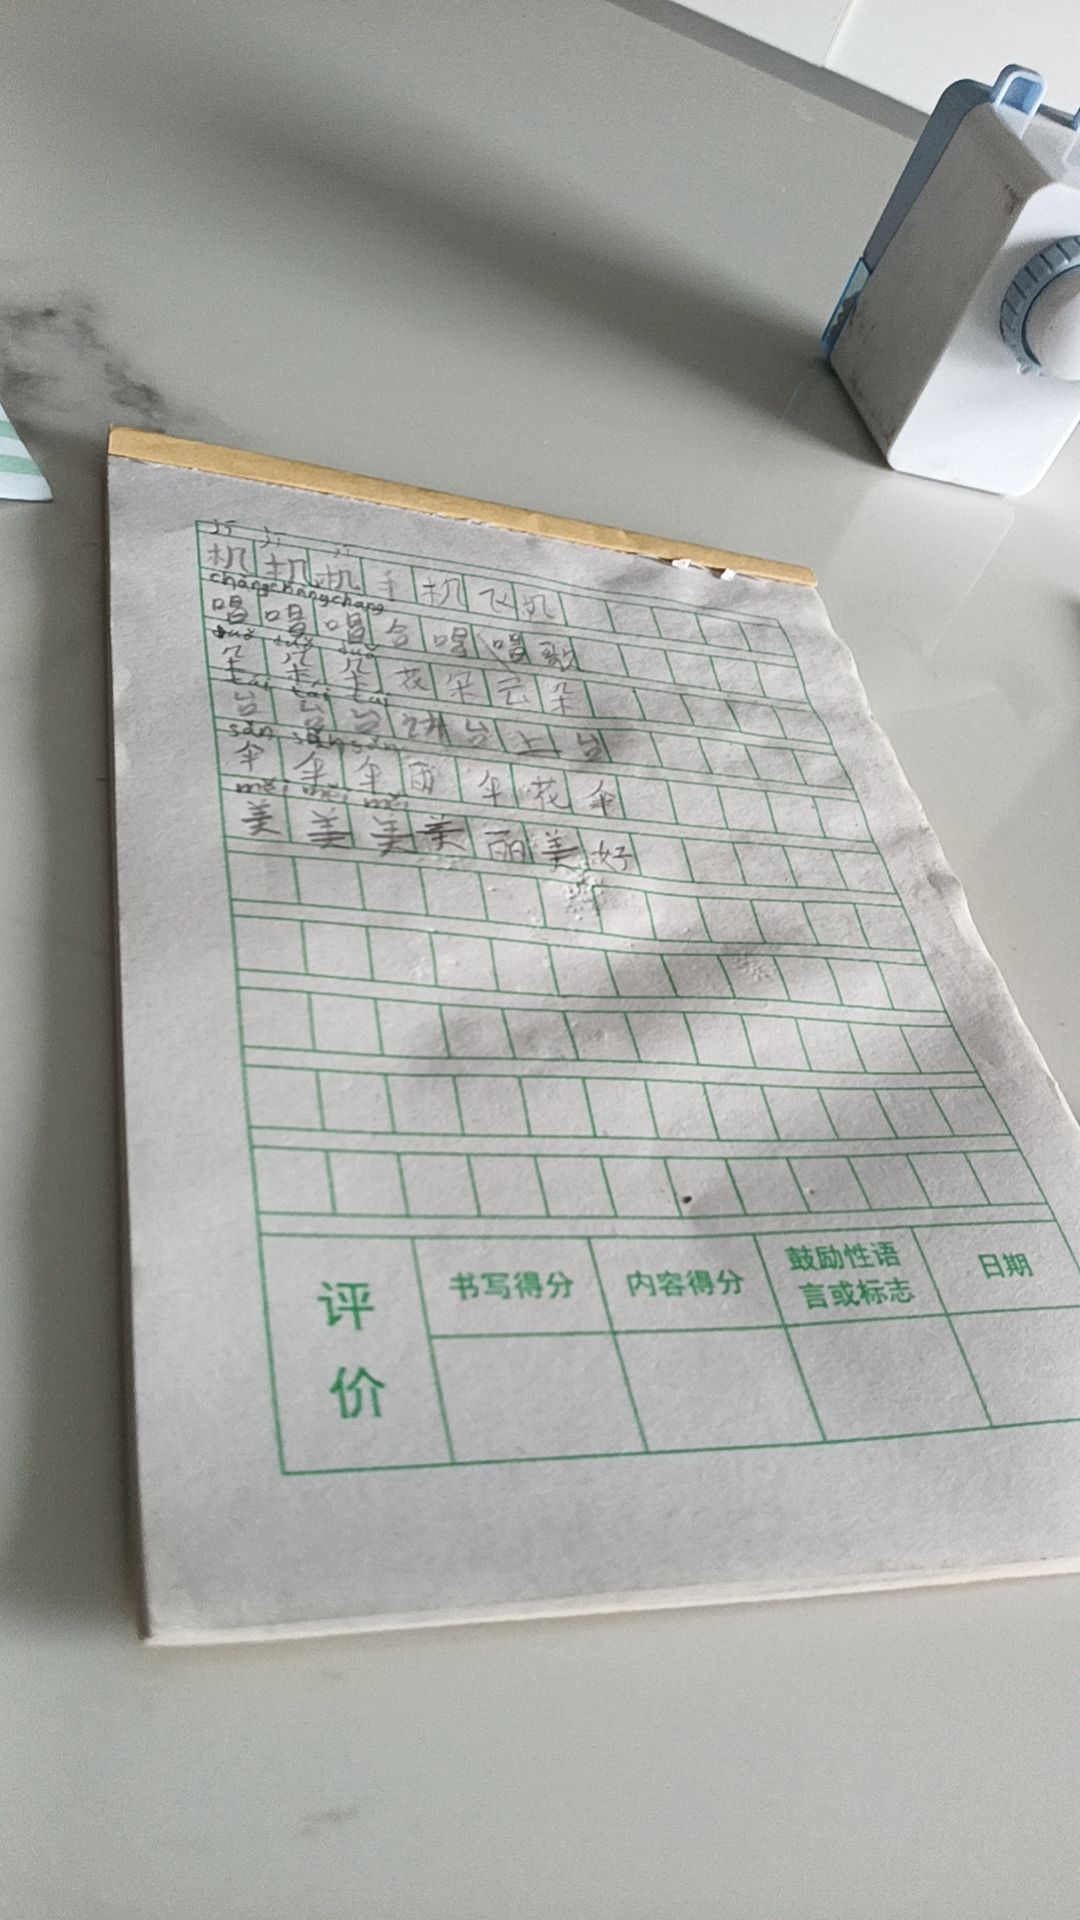 jī jī jī
机机机手机飞机
chàng chàng chàng
唱唱唱合唱唱歌
duǒ duǒ duǒ
朵朵朵花朵云朵
tái tái tái
台台台讲台上台
sǎn sǎn sǎn
伞伞伞雨伞花伞
měi měi měi
美美美美丽美好
评价
书写得分 内容得分 鼓励性语言或标志 日期